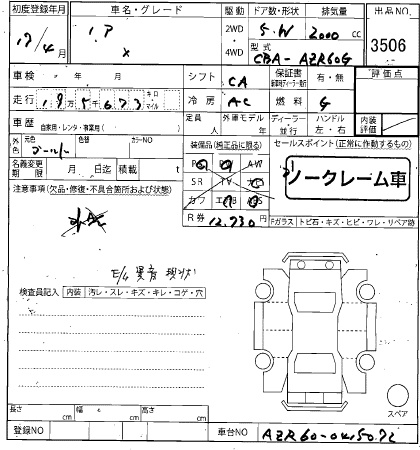 初度登録年月 車名・グレード 駆動 ドア数・形状 排気量 出品NO.
17/4月 2WD 5.W 2000 cc 3506
4WD 型式
CBA- AZR60G
車検 年 月 シフト CA 保証書 有・無 評価点
走行 キロ マイル 冷房 AC 燃料 G
車歴 自家用・レンタ・事業用( ) 定員 人 外車モデル 年 ディーラー 並行 ハンドル 左・右 内装評価
外色 元色 ゴールド 色替 カラーNO 装備品(純正品に限る) セールスポイント(正常に作動するもの)
名義変更期限 月 日迄 積載 t ノークレーム車
注意事項(欠品・修復・不具合箇所および状態) SR TV
カワ
R券 12,730 円 Fガラス トビ石・キズ・ヒビ・ワレ・リペア跡
E/G 異音 現状
検査員記入 内装 汚レ・スレ・キズ・キレ・コゲ・穴
スペア
長さ cm 幅 cm 高さ cm
登録NO 車台NO